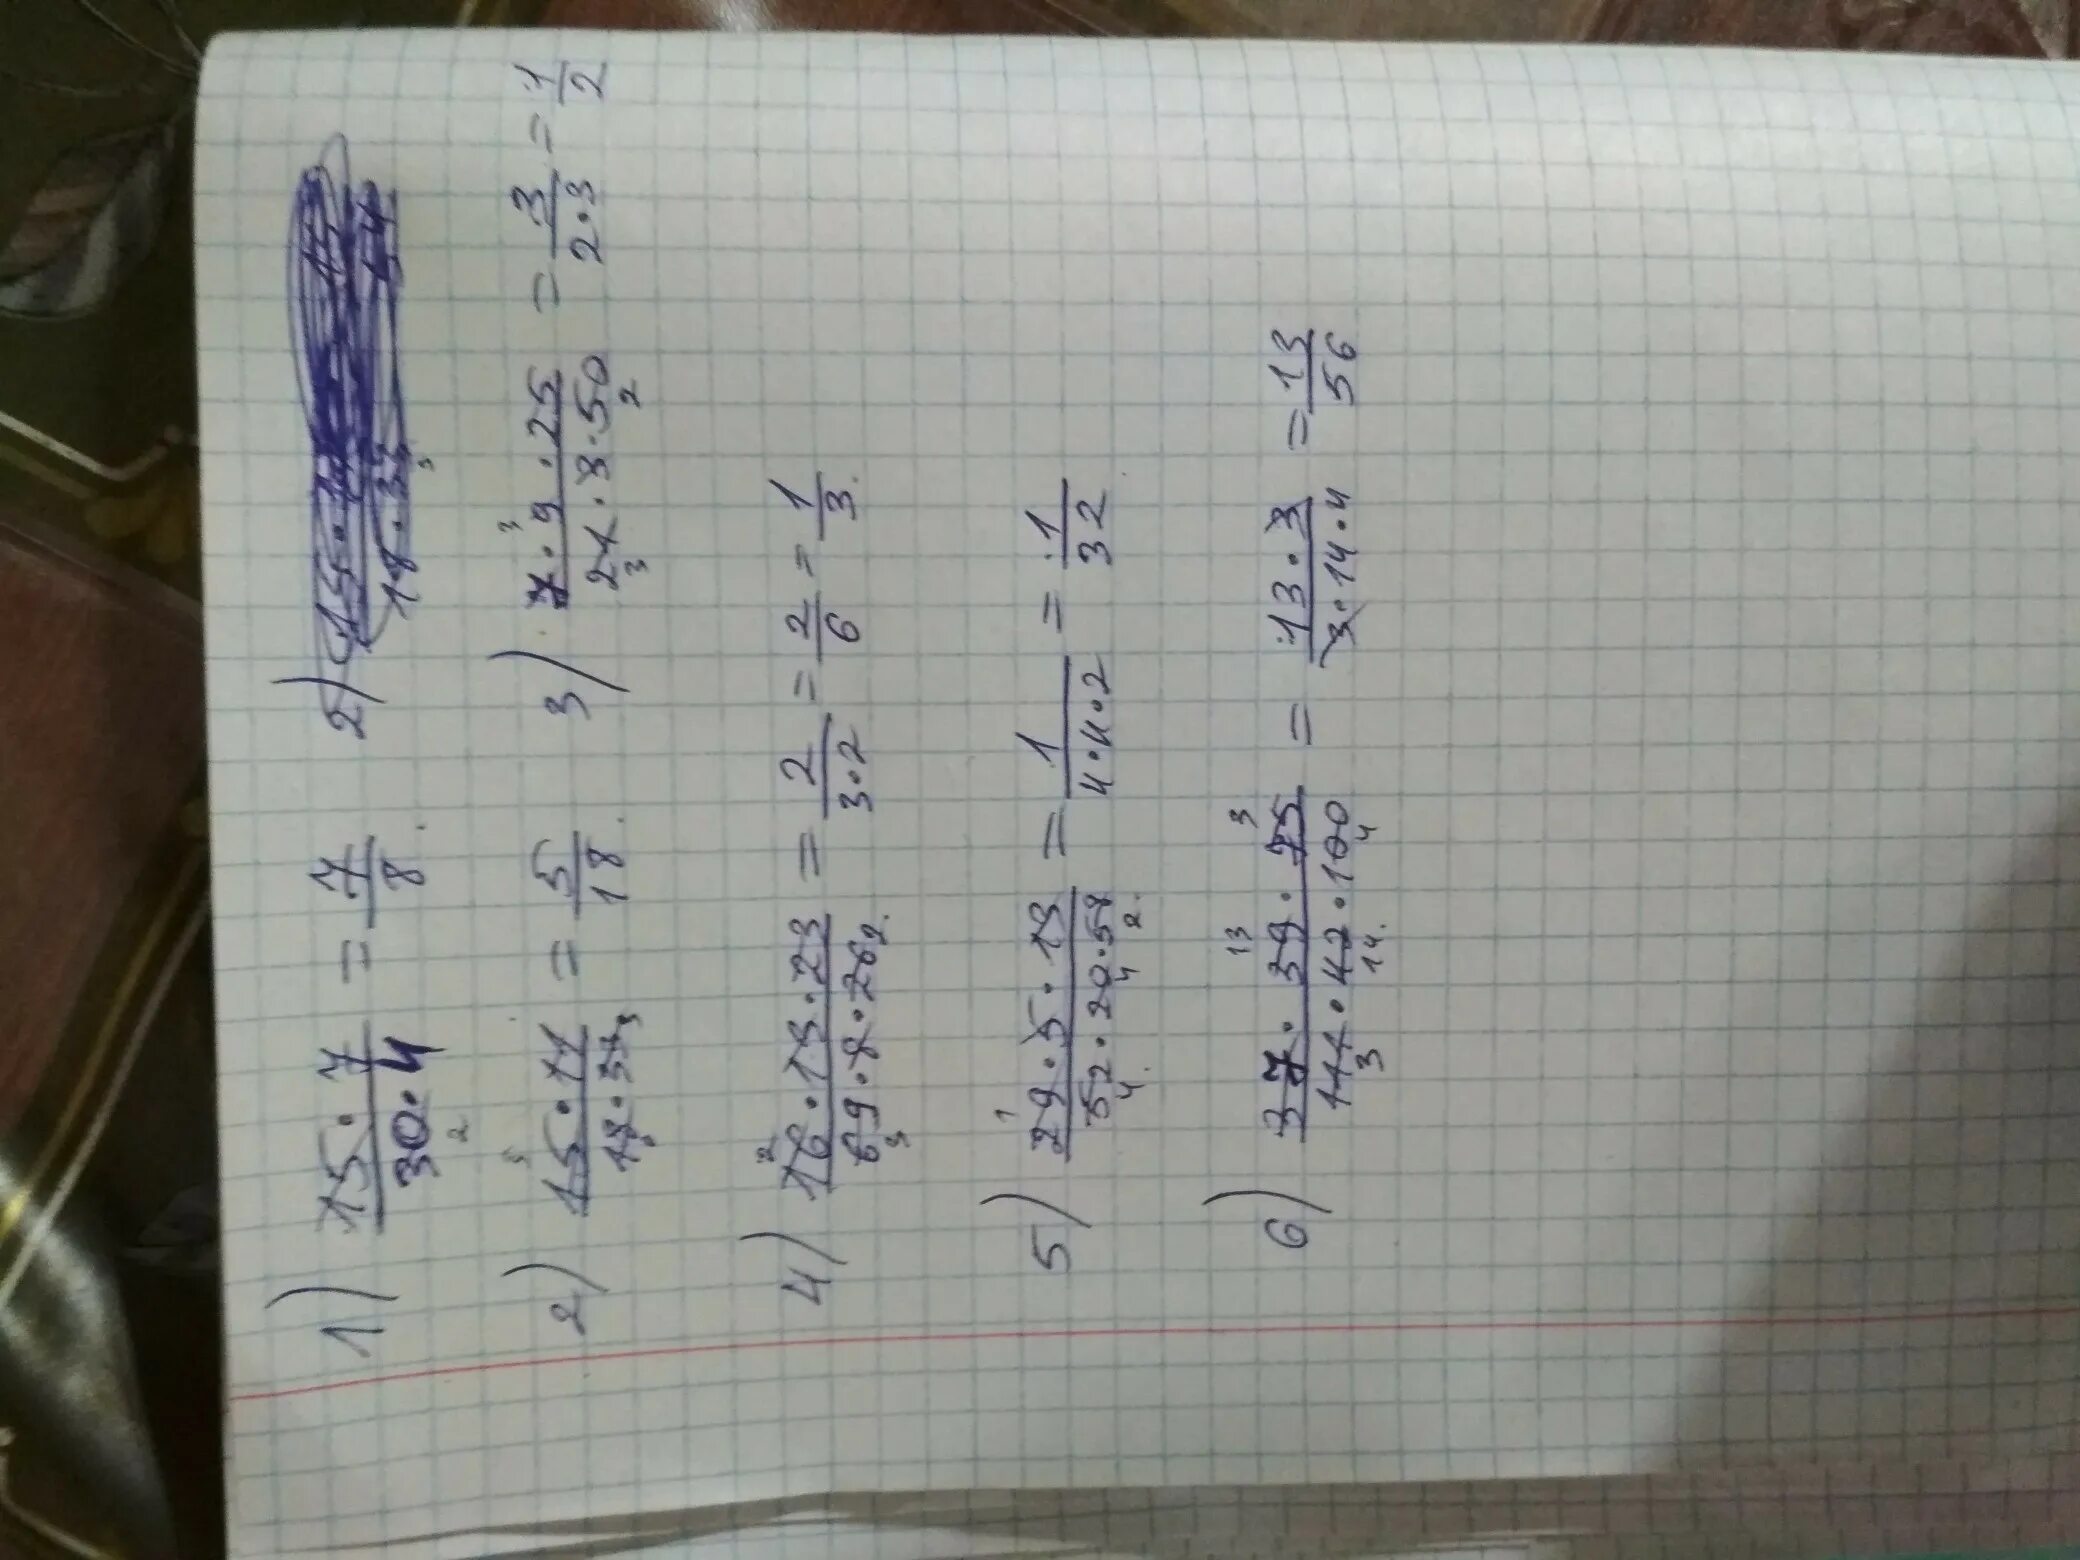 1) 15·7/30·4 = 7/8. 2) 18·33
2) 15·11/18·33 = 5/18. 3) 7·9·25/21·3·50 = 3/2·3 = 1/2
4) 16·13·23/69·8·26 = 2/3·2 = 2/6 = 1/3.
5) 29·5·13/52·20·58 = 1/4·4·2 = 1/32
6) 37·39·75/111·42·100 = 13·3/3·14·4 = 13/56